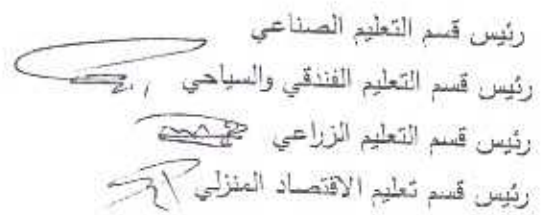 رئيس قسم التعليم الصناعي
رئيس قسم التعليم الفندقي والسياحي
رئيس قسم التعليم الزراعي
رئيس قسم تعليم الاقتصاد المنزلي